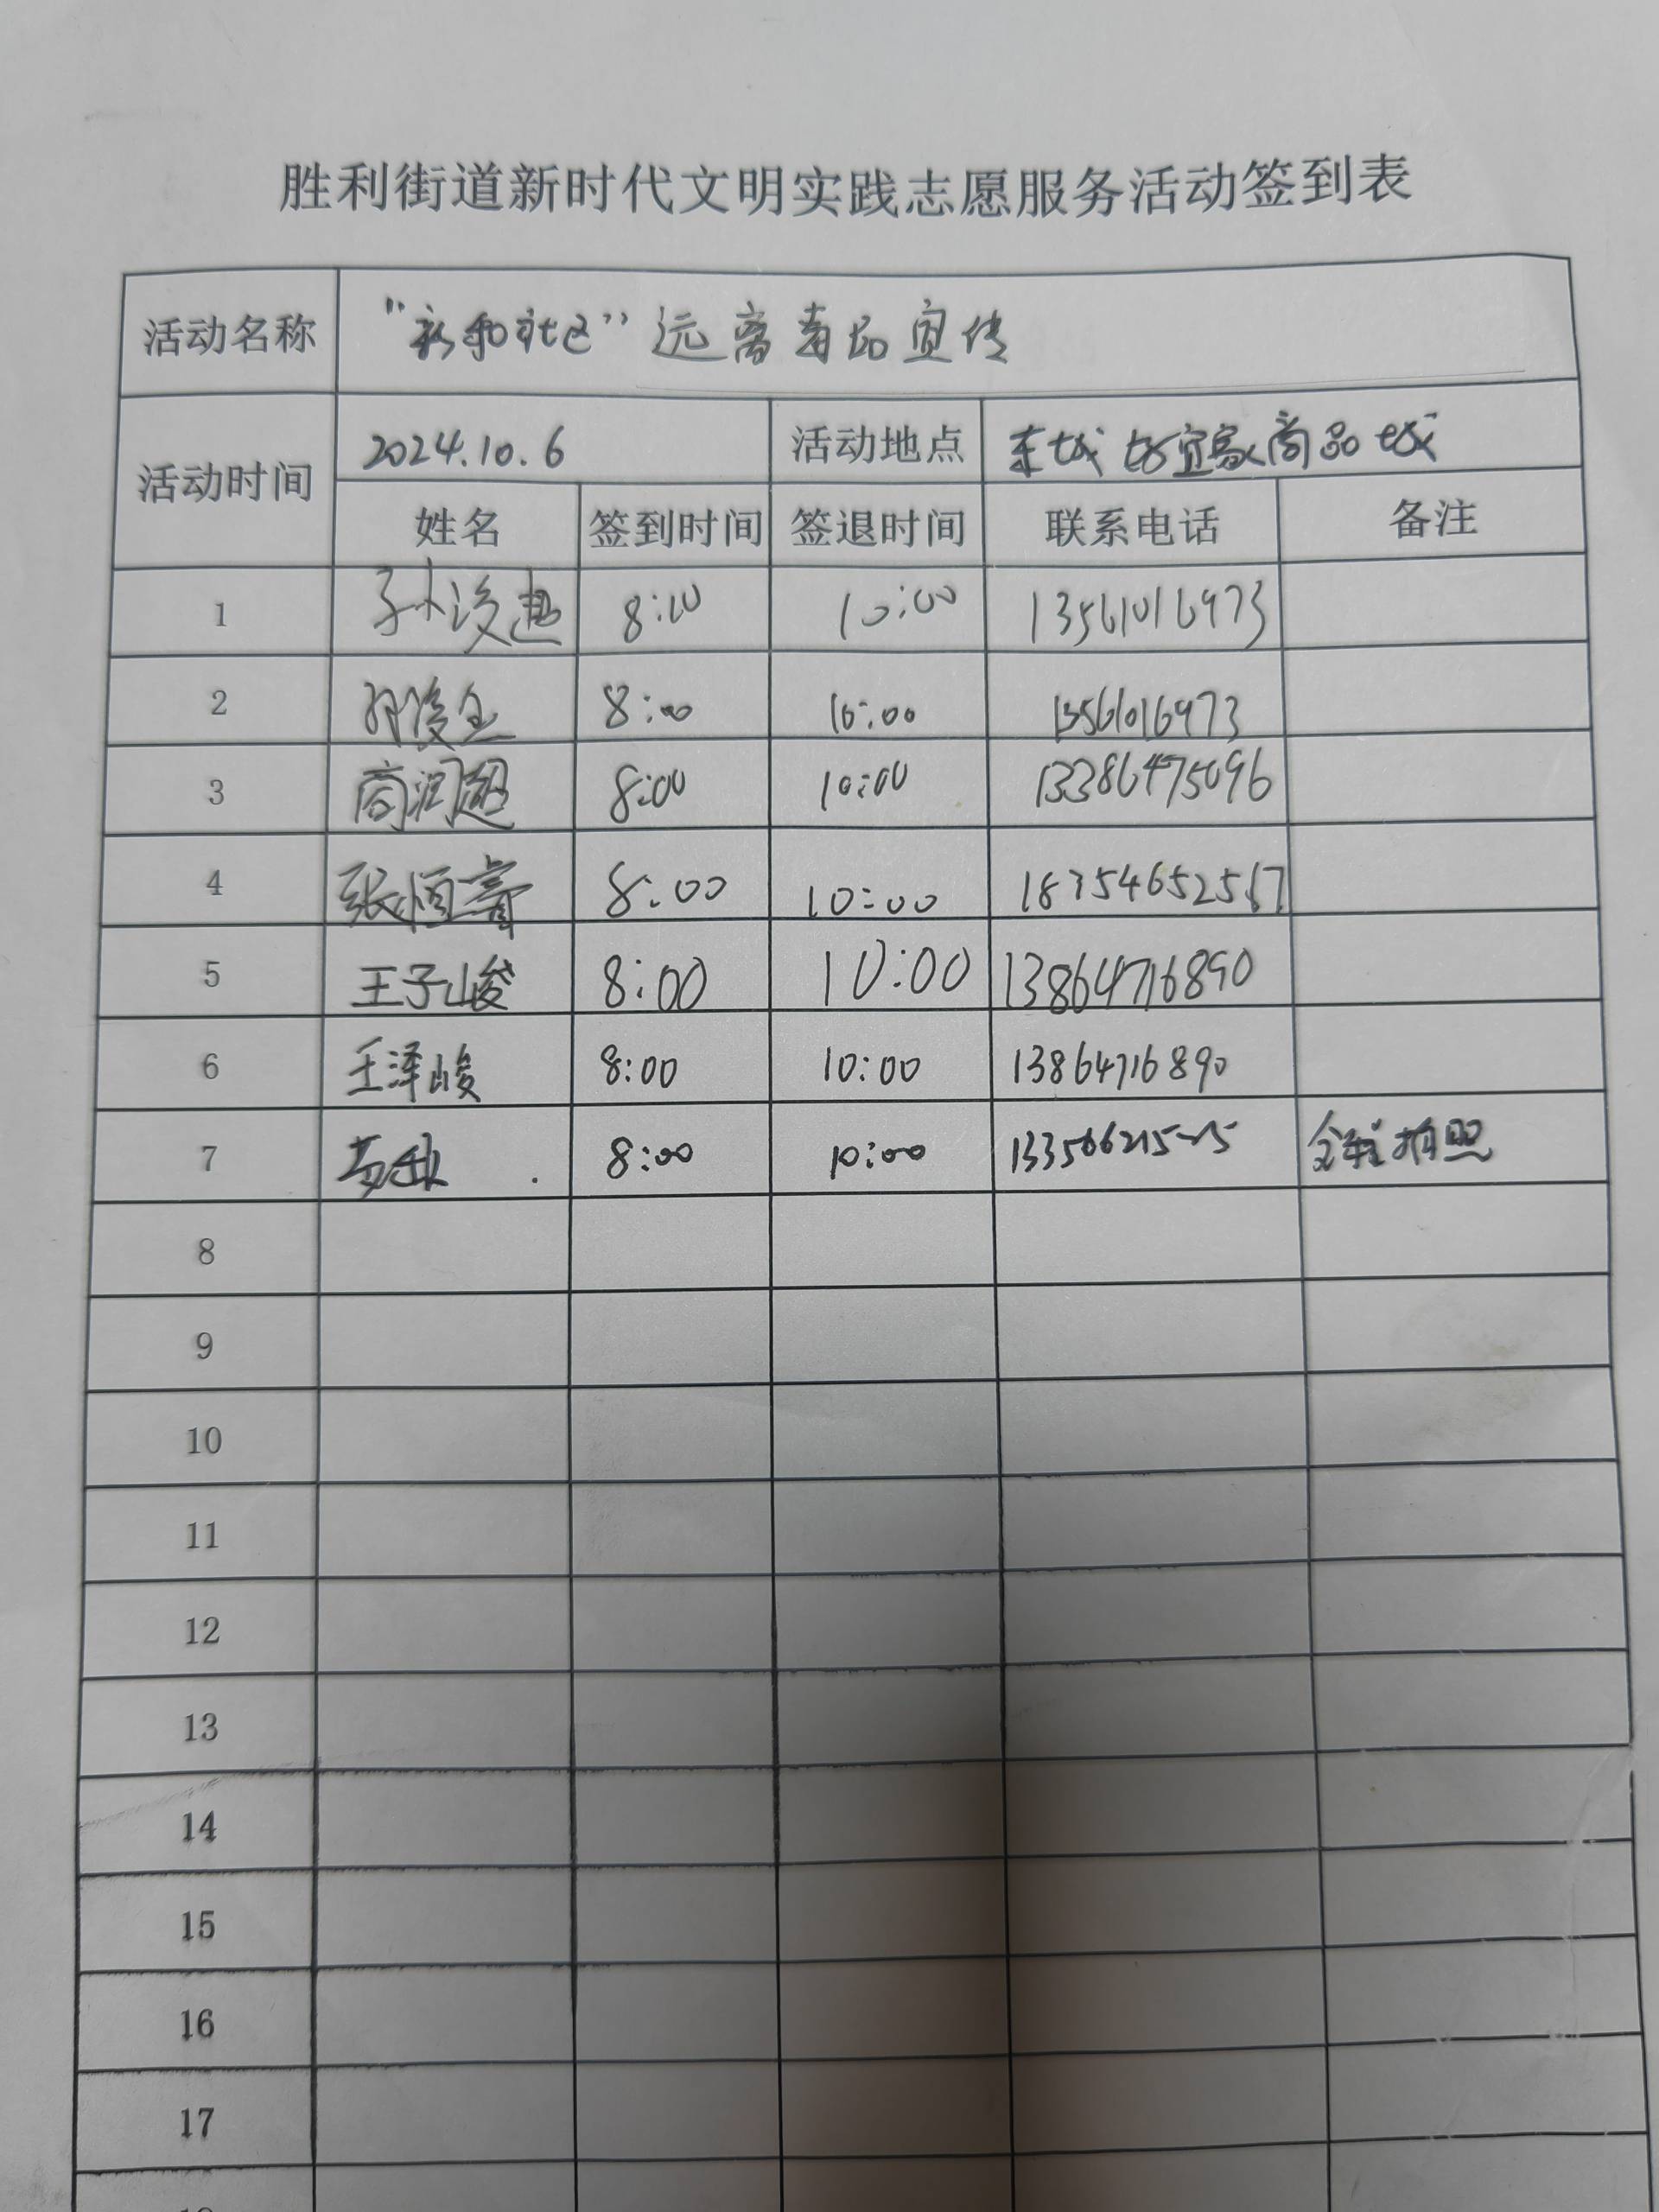 胜利街道新时代文明实践志愿服务活动签到表
活动名称 "新和社区"远离毒品宣传
活动时间 2024.10.6 活动地点 东城好宜家商品城
姓名 签到时间 签退时间 联系电话 备注
1 孙浚 8:00 10:00 13561016973
2 孙浚 8:00 10:00 13561016973
3 商润超 8:00 10:00 13386475096
4 张恒 8:00 10:00
5 王子峻 8:00 10:00 13864716890
6 王泽峻 8:00 10:00 13864716890
7 8:00 10:00 拍照
8
9
10
11
12
13
14
15
16
17